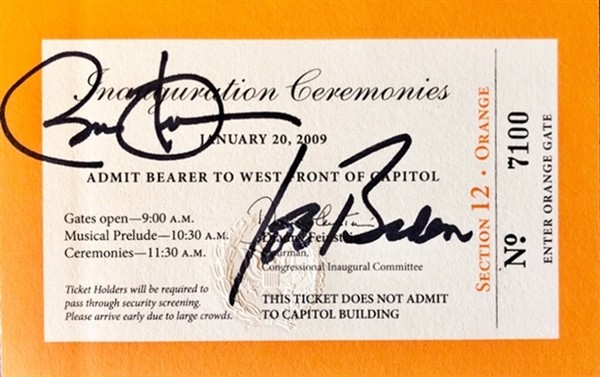 Inauguration Ceremonies
JANUARY 20, 2009
ADMIT BEARER TO WEST FRONT OF CAPITOL
Gates open—9:00 A.M.
Musical Prelude—10:30 A.M.
Ceremonies—11:30 A.M.
Joe Biden
Dianne Feinstein
Chairman,
Congressional Inaugural Committee
Ticket Holders will be required to
pass through security screening.
Please arrive early due to large crowds.
THIS TICKET DOES NOT ADMIT
TO CAPITOL BUILDING
SECTION 12 · ORANGE
Nº 7100
ENTER ORANGE GATE